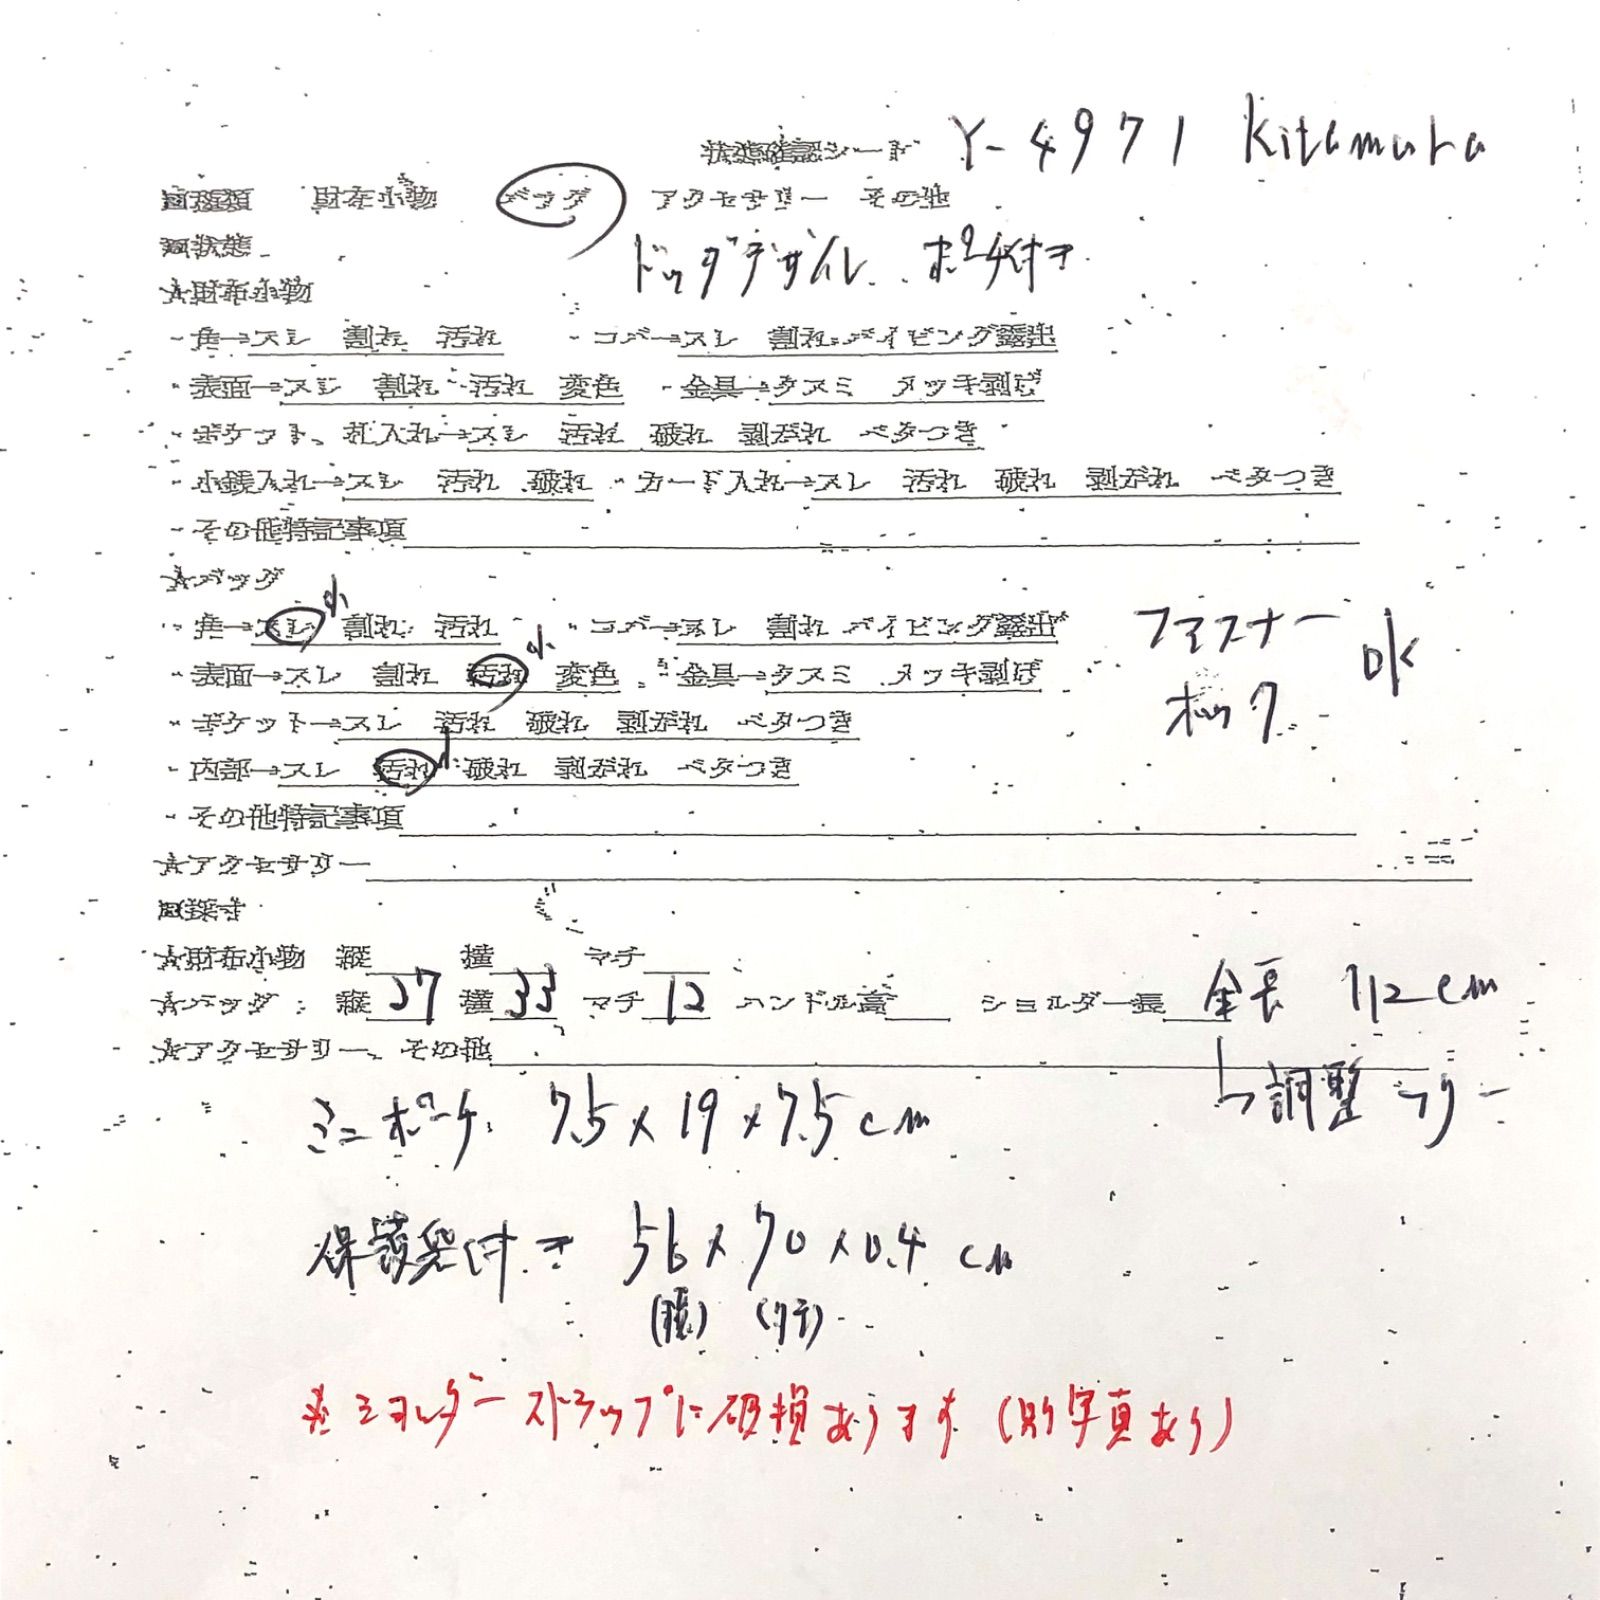 状態確認シート Y-4971 Kitamura
■種類 財布小物 バッグ アクセサリー その他
■状態 ドッグデザイン ポーチ付き
☆財布小物
・角→スレ 割れ 汚れ ・コバ→スレ 割れ パイピング露出
・表面→スレ 割れ 汚れ 変色 ・金具→クスミ メッキ剥げ
・ポケット、札入れ→スレ 汚れ 破れ 剥がれ ベタつき
・小銭入れ→スレ 汚れ 破れ ・カード入れ→スレ 汚れ 破れ 剥がれ ベタつき
・その他特記事項
☆バッグ
・角→スレ 小 割れ 汚れ ・コバ→スレ 割れ パイピング露出 ファスナー
・表面→スレ 割れ 汚れ 小 変色 ・金具→クスミ メッキ剥げ OK
・ポケット→スレ 汚れ 破れ 剥がれ ベタつき ホック
・内部→スレ 汚れ 小 破れ 剥がれ ベタつき
・その他特記事項
☆アクセサリー
■採寸
☆財布小物 縦 横 マチ
☆バッグ: 縦 27 横 33 マチ 12 ハンドル高 ショルダー長 全長 112cm
☆アクセサリー、その他 ↳調整フリー
ミニポーチ: 7.5×19×7.5cm
保護袋付き 56×70×0.4cm
(タテ)
※ショルダーストラップに破損あります(別写真あり)